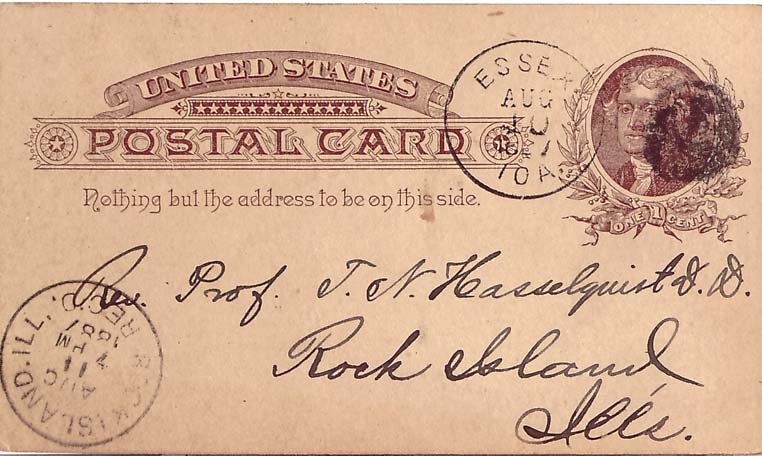 UNITED STATES
POSTAL CARD
Nothing but the address to be on this side.
ESSEX
AUG
10
IOA.
ONE 1 CENT
Rev. Prof. T. N. Hasselquist D. D.
Rock Island
Ills.
ROCK ISLAND. ILL.
AUG
11
PM
1887
REC'D.